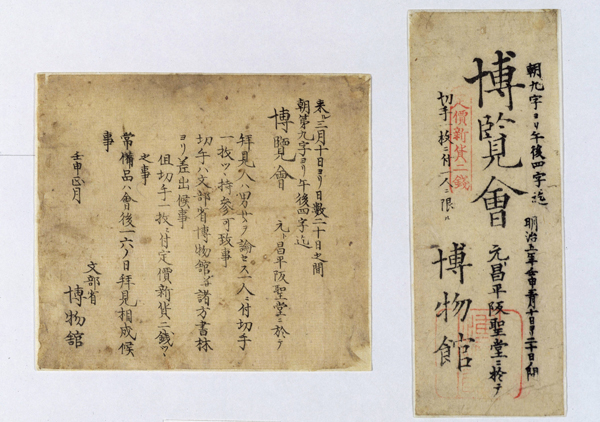 朝九字ヨリ午後四字迄 明治五年壬申三月十日ヨリ二十日ノ間
博覽會 元昌平阪聖堂ニ於テ
價新貨二錢
切手一枚ニ付一人ニ限ル
博物館
来ル三月十日ヨリ日數二十日之間
朝第九字ヨリ午後四字迄
博覽會 元ト昌平阪聖堂ニ於テ
拜見人ハ男女ヲ論セス一人ニ付切手
一枚ツヽ持参可致事
切手ハ文部省博物館并諸方書林
ヨリ差出候事
但切手一枚ニ付定價新貨二錢ツヽ
之事
常備品ハ會後一六ノ日拜見相成候
事
壬申正月
文部省
博物館